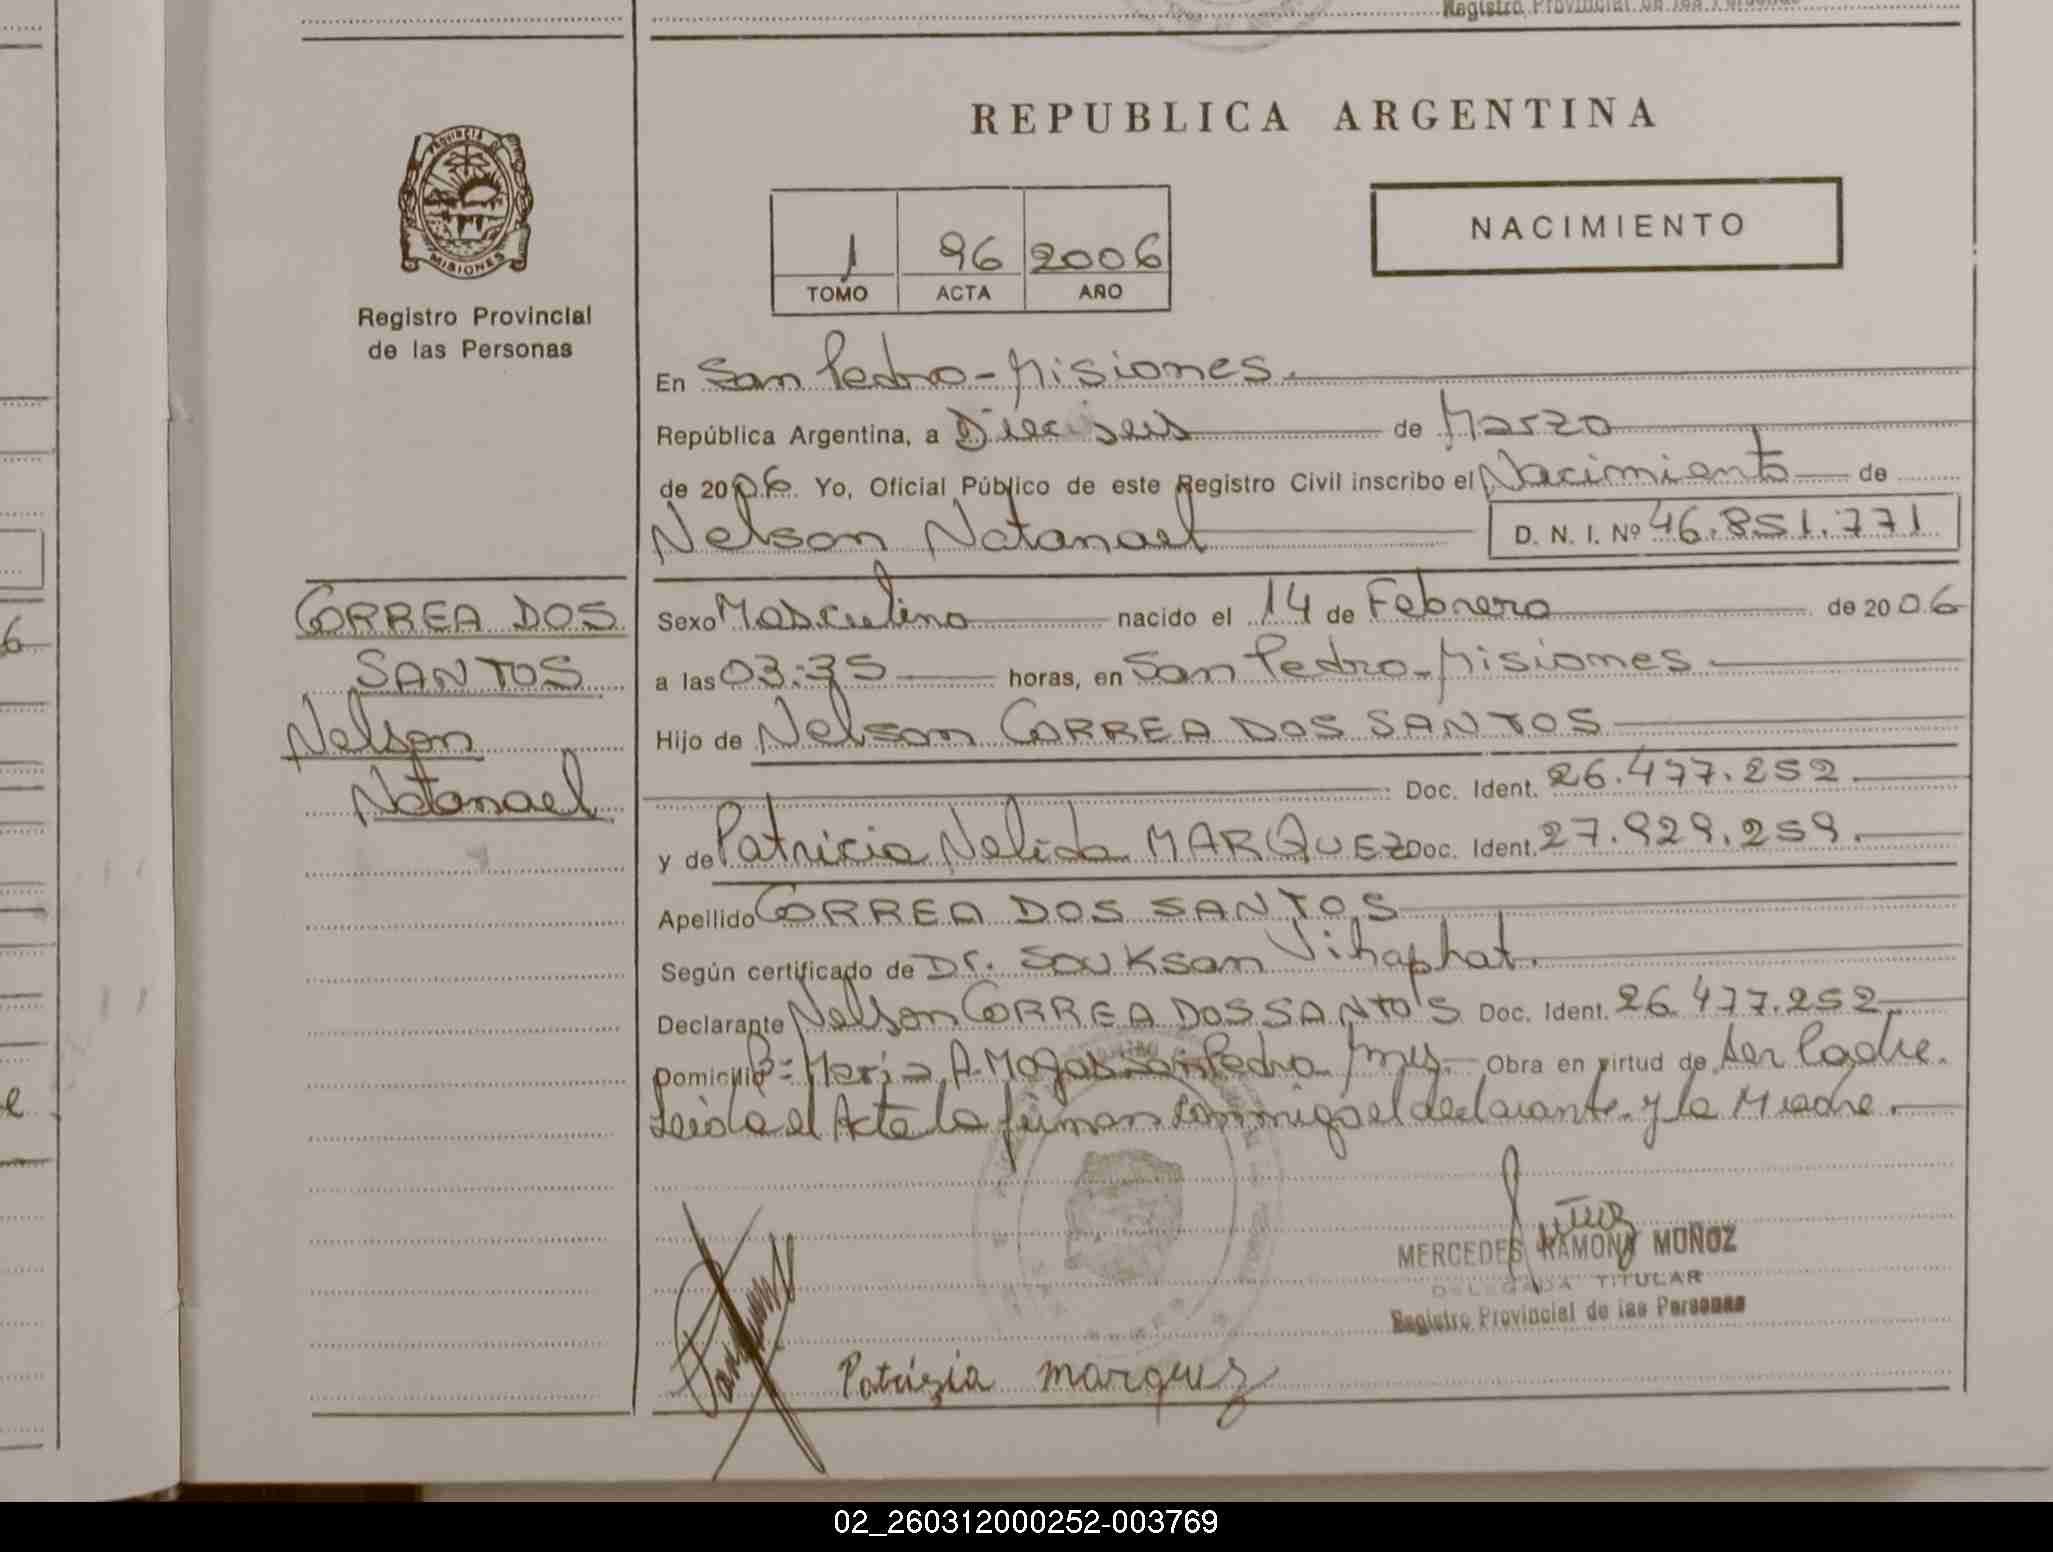 Registro Provincial de las Personas
REPUBLICA ARGENTINA
PROVINCIA DE
MISIONES
Registro Provincial
de las Personas
NACIMIENTO
1 96 2006
TOMO ACTA AÑO
En San Pedro - Misiones.
República Argentina, a Dieciseis de Marzo
de 2006. Yo, Oficial Público de este Registro Civil inscribo el Nacimiento de
Nelson Natanael D. N. I. Nº 46.851.771
CORREA DOS
SANTOS
Nelson
Natanael
Sexo Masculino nacido el 14 de Febrero de 2006
a las 03:35 horas, en San Pedro - Misiones
Hijo de Nelson CORREA DOS SANTOS
Doc. Ident. 26.477.252
y de Patricia Nelida MARQUEZ Doc. Ident. 27.929.259.
Apellido CORREA DOS SANTOS
Según certificado de Dr. Souksan Vihaphat.
Declarante Nelson CORREA DOS SANTOS Doc. Ident. 26.477.252
Domicilio Bº Maria A. Mogas San Pedro Mnes. Obra en virtud de ser Padre.
Leida el Acta la firman conmigo el declarante y la Madre.
MERCEDES RAMONA MUÑOZ
DELEGADA TITULAR
Registro Provincial de las Personas
Patrizia marquez
02_260312000252-003769